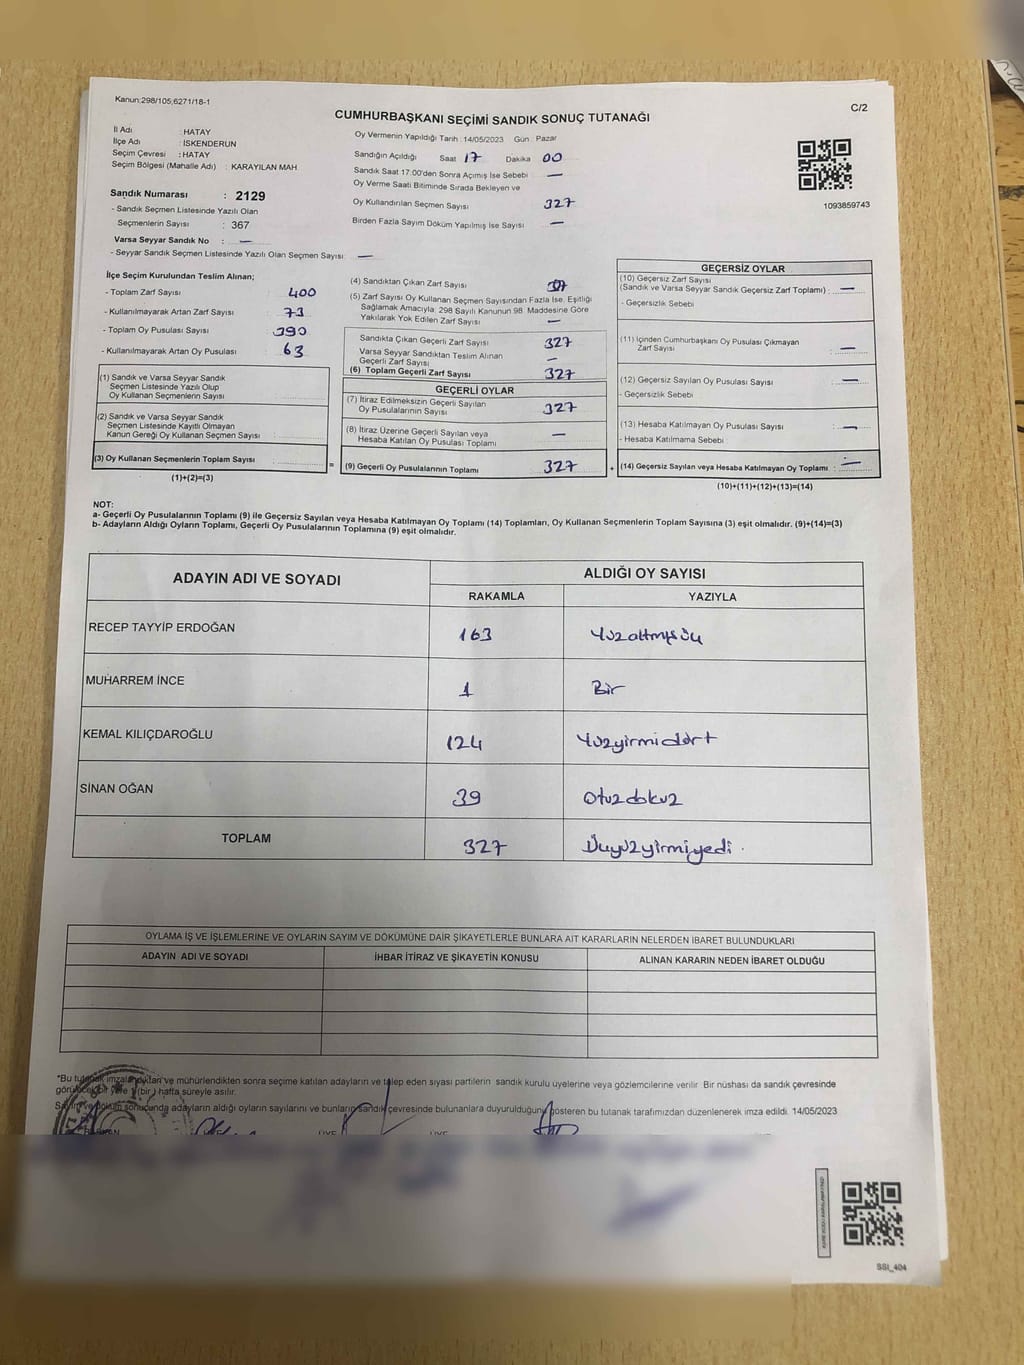 Kanun:298/105,6271/18-1
C/2
CUMHURBAŞKANI SEÇİMİ SANDIK SONUÇ TUTANAĞI
İl Adı : HATAY
İlçe Adı : İSKENDERUN
Seçim Çevresi : HATAY
Seçim Bölgesi (Mahalle Adı) : KARAYILAN MAH
Sandık Numarası : 2129
- Sandık Seçmen Listesinde Yazılı Olan
Seçmenlerin Sayısı : 367
Varsa Seyyar Sandık No : —
- Seyyar Sandık Seçmen Listesinde Yazılı Olan Seçmen Sayısı: —
Oy Vermenin Yapıldığı Tarih :14/05/2023 Gün : Pazar
Sandığın Açıldığı Saat 17 Dakika 00
Sandık Saat 17.00'den Sonra Açılmış İse Sebebi —
Oy Verme Saati Bitiminde Sırada Bekleyen ve
Oy Kullandırılan Seçmen Sayısı 327
Birden Fazla Sayım Döküm Yapılmış İse Sayısı —
1093859743
İlçe Seçim Kurulundan Teslim Alınan;
- Toplam Zarf Sayısı 400
- Kullanılmayarak Artan Zarf Sayısı : 73
- Toplam Oy Pusulası Sayısı : 390
- Kullanılmayarak Artan Oy Pusulası : 63
(1) Sandık ve Varsa Seyyar Sandık
Seçmen Listesinde Yazılı Olup
Oy Kullanan Seçmenlerin Sayısı :
(2) Sandık ve Varsa Seyyar Sandık
Seçmen Listesinde Kayıtlı Olmayan
Kanun Gereği Oy Kullanan Seçmen Sayısı :
(3) Oy Kullanan Seçmenlerin Toplam Sayısı :
(1)+(2)=(3)
(4) Sandıktan Çıkan Zarf Sayısı :
(5) Zarf Sayısı Oy Kullanan Seçmen Sayısından Fazla İse, Eşitliği
Sağlamak Amacıyla, 298 Sayılı Kanunun 98. Maddesine Göre
Yakılarak Yok Edilen Zarf Sayısı : —
Sandıkta Çıkan Geçerli Zarf Sayısı 327
Varsa Seyyar Sandıktan Teslim Alınan
Geçerli Zarf Sayısı —
(6) Toplam Geçerli Zarf Sayısı 327
GEÇERLİ OYLAR
(7) İtiraz Edilmeksizin Geçerli Sayılan
Oy Pusulalarının Sayısı : 327
(8) İtiraz Üzerine Geçerli Sayılan veya
Hesaba Katılan Oy Pusulası Toplamı : —
= (9) Geçerli Oy Pusulalarının Toplamı 327
GEÇERSİZ OYLAR
(10) Geçersiz Zarf Sayısı
(Sandık ve Varsa Seyyar Sandık Geçersiz Zarf Toplamı) : —
- Geçersizlik Sebebi
(11) İçinden Cumhurbaşkanı Oy Pusulası Çıkmayan
Zarf Sayısı : —
(12) Geçersiz Sayılan Oy Pusulası Sayısı : —
- Geçersizlik Sebebi
(13) Hesaba Katılmayan Oy Pusulası Sayısı : —
- Hesaba Katılmama Sebebi :
+ (14) Geçersiz Sayılan veya Hesaba Katılmayan Oy Toplamı : —
(10)+(11)+(12)+(13)=(14)
NOT:
a- Geçerli Oy Pusulalarının Toplamı (9) ile Geçersiz Sayılan veya Hesaba Katılmayan Oy Toplamı (14) Toplamları, Oy Kullanan Seçmenlerin Toplam Sayısına (3) eşit olmalıdır. (9)+(14)=(3)
b- Adayların Aldığı Oyların Toplamı, Geçerli Oy Pusulalarının Toplamına (9) eşit olmalıdır.
ADAYIN ADI VE SOYADI
ALDIĞI OY SAYISI
RAKAMLA YAZIYLA
RECEP TAYYİP ERDOĞAN 163 Yüzaltmışüç
MUHARREM İNCE 1 Bir
KEMAL KILIÇDAROĞLU 124 Yüzyirmidört
SİNAN OĞAN 39 Otuzdokuz
TOPLAM 327 Üçyüzyirmiyedi.
OYLAMA İŞ VE İŞLEMLERİNE VE OYLARIN SAYIM VE DÖKÜMÜNE DAİR ŞİKAYETLERLE BUNLARA AİT KARARLARIN NELERDEN İBARET BULUNDUKLARI
ADAYIN ADI VE SOYADI İHBAR İTİRAZ VE ŞİKAYETİN KONUSU ALINAN KARARIN NEDEN İBARET OLDUĞU
*Bu tutanak imzalandıktan ve mühürlendikten sonra seçime katılan adayların ve talep eden siyasi partilerin sandık kurulu üyelerine veya gözlemcilerine verilir. Bir nüshası da sandık çevresinde
görülecek bir yere 1 (bir) hafta süreyle asılır.
Sayım ve döküm sonucunda adayların aldığı oyların sayılarını ve bunların sandık çevresinde bulunanlara duyurulduğunu gösteren bu tutanak tarafımızdan düzenlenerek imza edildi. 14/05/2023
SSI_404